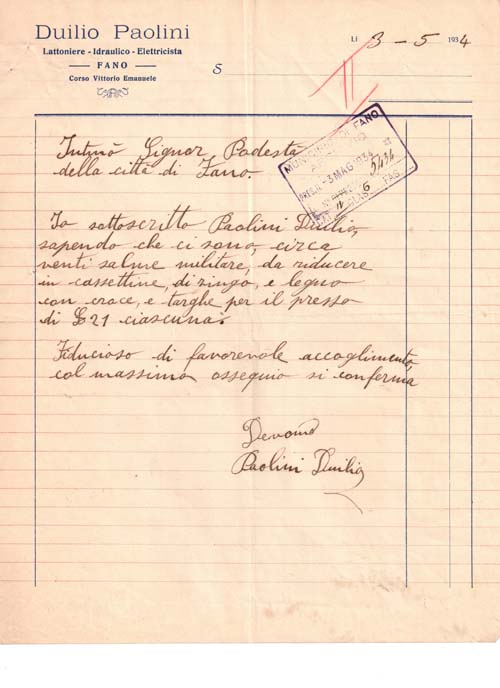 Duilio Paolini
Lattoniere - Idraulico - Elettricista
FANO
Corso Vittorio Emanuele
Lì 3 - 5 1934
S
II
MUNICIPIO DI FANO
-3 MAG 1934
5434
6
CLAS. FAS.
Signor Podestà
della città di Fano.
Io sottoscritto Paolini Duilio,
sapendo che ci sono, circa
venti salme militare, da riducere
in cassettine, di zingo, e legno
con croce, e targhe per il presso
di £21 ciascuna.
Fiducioso di favorevole accoglimento,
col massimo ossequio si conferma
Devomo
Paolini Duilio